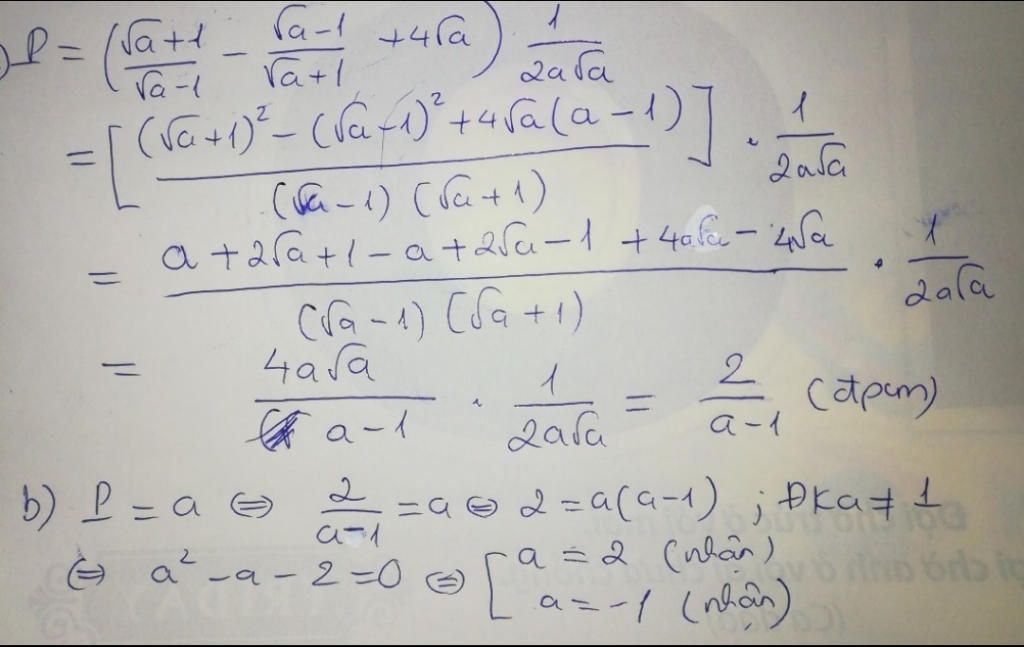 ) P = (\frac{\sqrt{a}+1}{\sqrt{a}-1} - \frac{\sqrt{a}-1}{\sqrt{a}+1} + 4\sqrt{a}) \frac{1}{2a\sqrt{a}}
= [\frac{(\sqrt{a}+1)^2 - (\sqrt{a}-1)^2 + 4\sqrt{a}(a-1)}{(\sqrt{a}-1)(\sqrt{a}+1)}] . \frac{1}{2a\sqrt{a}}
= \frac{a+2\sqrt{a}+1-a+2\sqrt{a}-1+4a\sqrt{a}-4\sqrt{a}}{(\sqrt{a}-1)(\sqrt{a}+1)} . \frac{1}{2a\sqrt{a}}
= \frac{4a\sqrt{a}}{a-1} . \frac{1}{2a\sqrt{a}} = \frac{2}{a-1} (đpcm)
b) P = a ⇔ \frac{2}{a-1} = a ⇔ 2 = a(a-1) ; ĐK a ≠ 1
⇔ a^2 - a - 2 = 0 ⇔ [ a = 2 (nhận)
a = -1 (nhận)